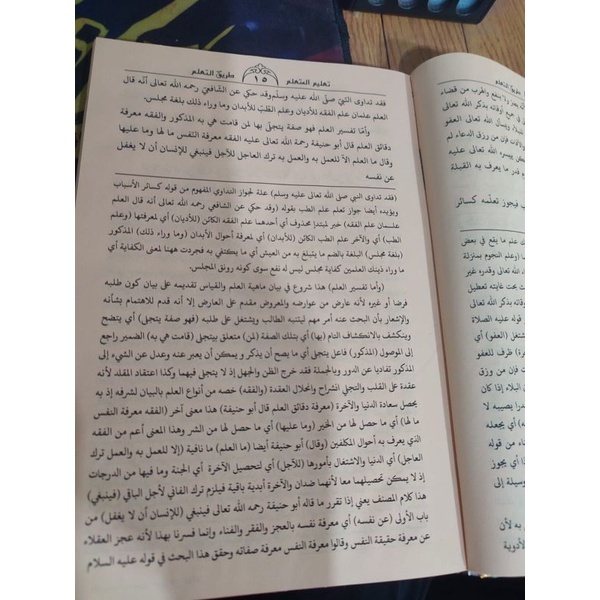 تعليم المتعلم ١٥ طريق التعلم
فقد تداوى النبيّ صلّى الله عليه وسلّم وقد حكي عن الشافعيّ رحمه الله تعالى أنّه قال
العلم علمان علم الفقه للأديان وعلم الطبّ للأبدان وما وراء ذلك بلغة مجلس.
وأمّا تفسير العلم فهو صفة يتجلّى بها لمن قامت هي به المذكور والفقه معرفة
دقائق العلم قال أبو حنيفة رحمة الله تعالى عليه الفقه معرفة النفس ما لها وما عليها
وقال ما العلم الّا للعمل به والعمل به ترك العاجل للآجل فينبغي للإنسان أن لا يغفل
عن نفسه
(فقد تداوى النبي صلى الله تعالى عليه وسلم) علة لجواز التداوي المفهوم من قوله كسائر الأسباب
ويؤيده أيضا جواز تعلم علم الطب بقوله (وقد حكي عن الشافعي رحمه الله تعالى أنه قال العلم
علمان علم الفقه) خبر لمبتدإ محذوف أي أحدهما علم الفقه الكائن (للأديان) أي لمعرفتها (وعلم
الطب) أي والآخر علم الطب الكائن (للأبدان) أي لمعرفة أحوال الأبدان (وما وراء ذلك) المذكور
(بلغة مجلس) البلغة بالضم ما يتبلغ به من العيش أي ما يكتفي به فجردت ههنا لمعنى الكفاية أي
ما وراء ذينك العلمين كفاية مجلس ليس له نفع سوى كونه رونق المجلس.
(وأما تفسير العلم) هذا شروع في بيان ماهية العلم والقياس تقديمه على بيان كون طلبه
فرضا أو غيره لأنه عارض من عوارضه والمعروض مقدم على العارض إلا أنه قدم للاهتمام بشأنه
والإشعار بأن البحث عنه أمر مهم لينتبه الطالب ويشتغل على طلبه (فهو صفة يتجلى) أي يتضح
وينكشف بالانكشاف التام (بها) أي بتلك الصفة (لمن) متعلق بيتجلى (قامت هي به) الضمير راجع
إلى الموصول (المذكور) فاعل يتجلى أي ما يصح أن يذكر ويمكن أن يعبر عنه وعدل عن الشيء إلى
المذكور تفاديا عن الدور وبالجملة فقد خرج الظن والجهل إذ لا يتجلى فيهما وكذا اعتقاد المقلد لأنه
عقدة على القلب والتجلي انشراح وانحلال العقدة (والفقه) خصه من أنواع العلم بالبيان لشرفه إذ به
يحصل سعادة الدنيا والآخرة (معرفة دقائق العلم قال أبو حنيفة) هذا معنى آخر (الفقه معرفة النفس
ما لها) أي ما حصل لها من الخير (وما عليها) أي ما حصل لها من الشر وهذا المعنى أعم من الفقه
الذي يعرف به أحوال المكلفين (وقال) أبو حنيفة أيضا (ما العلم) ما نافية (إلا للعمل به والعمل به ترك
العاجل) أي الدنيا والاشتغال بأمورها (للآجل) أي لتحصيل الآخرة أي الجنة وما فيها من الدرجات
إذ لا يمكن تحصيلهما معا لأنهما ضدان والآخرة أبدية باقية فيلزم ترك الفاني لأجل الباقي (فينبغي)
هذا كلام المصنف يعني إذا تقرر ما قاله أبو حنيفة رحمه الله تعالى فينبغي (للإنسان أن لا يغفل) من
باب الأولى (عن نفسه) أي معرفة نفسه بالعجز والفقر والفناء وإنما فسرنا بهذا لأنه عجز العقلاء
عن معرفة حقيقة النفس وقالوا معرفة النفس معرفة صفاته وحقق هذا البحث في قوله عليه السلام